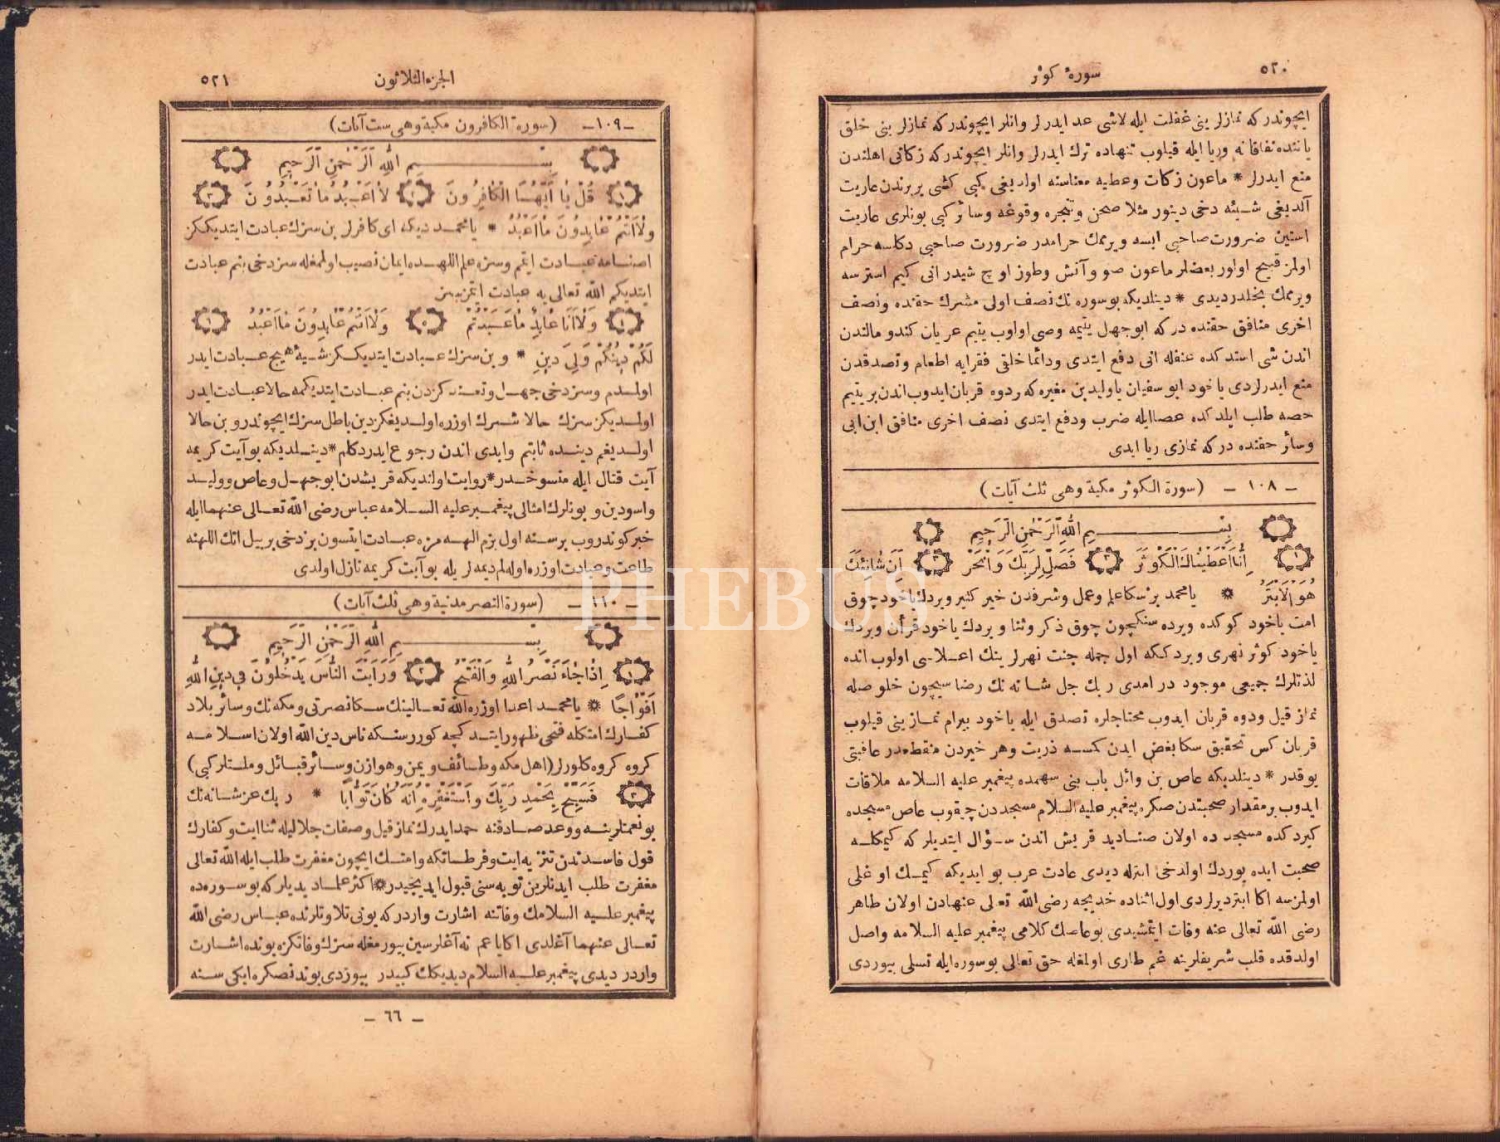 ٥٢٠
سورهٔ كوثر
ايچوندركه نمازلرينى غفلت ايله لاشى عد ايدرلر وانلر ايچوندركه نمازلرينى خلق
ياننده نفاقانه وريا ايله قيلوب تنهاده ترك ايدرلر وانلر ايچوندركه زكاتى اهلندن
منع ايدرلر * ماعون زكات وعطيه معناسنه اولديغى كبى كشى بربرندن عاريت
آلديغى شيئه دخى دينور مثلا صحن وتنجره وقوغه وسائر كبى بونلرى عاريت
استين ضرورت صاحبى ايسه ويرمك حرامدر ضرورت صاحبى دكلسه حرام
اولمز قبيح اولور بعضلر ماعون صو وآتش وطوز اوچ شيدر انى كيم استرسه
ويرمك بخلدر ديدى * دينلديكه بو سوره نك نصف اولى مشرك حقنده ونصف
اخرى منافق حقنده دركه ابوجهل يتيمه وصى اولوب يتيم عريان كندو مالندن
اندن شى استدكده عنفله انى دفع ايتدى ودائما خلقى فقرايه اطعام وتصدقدن
منع ايدرلردى ياخود ابو سفيان ياوليد بن مغيره كه دوه قربان ايدوب اندن بر يتيم
حصه طلب ايلدكده عصاايله ضرب ودفع ايتدى نصف اخرى منافق ابن ابى
وسائر حقنده دركه نمازى ريا ايدى
ـ ١٠٨ ـ (سورة الكوثر مكية وهى ثلث آيات)
بِسْــــمِ اللّٰهِ الرَّحْمٰنِ الرَّحِيمِ
١ اِنَّا اَعْطَيْنَاكَ الْكَوْثَرَ ٢ فَصَلِّ لِرَبِّكَ وَانْحَرْ ٣ اِنَّ شَانِئَكَ
هُوَ الْاَبْتَرُ * يا محمد بز سكا علم وعمل وشرفدن خير كثير ويردك ياخود چوق
امت ياخود كوكده ويرده سنكچون چوق ذكر وثنا ويردك ياخود قرآن ويردك
ياخود كوثر نهرى ويردككه اول جمله جنت نهرلرينك اعلاسى اولوب انده
لذتلرك جميعى موجود در امدى ربك جل شانه نك رضاسيچون خلوصله
نماز قيل ودوه قربان ايدوب محتاجلره تصدق ايله ياخود بيرام نمازينى قيلوب
قربان كس تحقيق سكا بغض ايدن كمسه ذريت وهر خيردن منقطعدر عاقبتى
يوقدر * دينلديكه عاص بن وائل باب بنى سهمده پيغمبر عليه السلامه ملاقات
ايدوب بر مقدار صحبتدن صكره پيغمبر عليه السلام مسجددن چيقوب عاص مسجده
كيردكده مسجد ده اولان صناديد قريش اندن سؤال ايتديلركه كيمكله
صحبت ايده يوردك اولدخى ابترله ديدى عادت عرب بو ايديكه كيمك اوغلى
اولمزسه اكا ابتر ديرلردى اول اثناده خديجه رضى الله تعالى عنهادن اولان طاهر
رضى الله تعالى عنه وفات ايتمشيدى بو عاصك كلامى پيغمبر عليه السلامه واصل
اولدقده قلب شريفلرينه غم طارى اولمغله حق تعالى بو سوره ايله تسلى بيوردى
الجزء الثلاثون
٥٢١
ـ ١٠٩ ـ (سورة الكافرون مكية وهى ست آيات)
بِسْــــمِ اللّٰهِ الرَّحْمٰنِ الرَّحِيمِ
١ قُلْ يَا اَيُّهَا الْكَافِرُونَ ٢ لَا اَعْبُدُ مَا تَعْبُدُونَ ٣
وَلَا اَنْتُمْ عَابِدُونَ مَا اَعْبُدُ * يا محمد ديكه اى كافرلر بن سزك عبادت ايتديككز
اصنامه عبادت ايتمم وسزه علم اللهده ايمان نصيب اولمغله سز دخى بنم عبادت
ايتديكم الله تعالى يه عبادت ايتمزسز
٤ وَلَا اَنَا عَابِدٌ مَا عَبَدْتُمْ ٥ وَلَا اَنْتُمْ عَابِدُونَ مَا اَعْبُدُ ٦
لَكُمْ دِينُكُمْ وَلِىَ دِينِ * وبن سزك عبادت ايتديككز شيئه هيچ عبادت ايدر
اولمدم وسز دخى جهل وتعندكزدن بنم عبادت ايتديكمه حالا عبادت ايدر
اولمديكز سزك حالا شرك اوزره اولديغكز دين باطل سزك ايچوندر وبن حالا
اولديغم دينده ثابتم وابدى اندن رجوع ايدر دكلم * دينلديكه بو آيت كريمه
آيت قتال ايله منسوخدر * روايت اولنديكه قريشدن ابوجهل وعاص ووليد
واسودين وبونلرك امثالى پيغمبر عليه السلامه عباس رضى الله تعالى عنهما ايله
خبر كوندروب برسنه اول بزم الهه مزه عبادت ايتسون بز دخى بر ييل انك اللهنه
طاعت وعبادت اوزره اوله لم ديمه لريله بو آيت كريمه نازل اولدى
ـ ١١٠ ـ (سورة النصر مدنية وهى ثلث آيات)
بِسْــــمِ اللّٰهِ الرَّحْمٰنِ الرَّحِيمِ
١ اِذَا جَاءَ نَصْرُ اللّٰهِ وَالْفَتْحُ ٢ وَرَاَيْتَ النَّاسَ يَدْخُلُونَ فِى دِينِ اللّٰهِ
اَفْوَاجًا * يا محمد اعدا اوزره الله تعالينك سكا نصرتى ومكه نك وسائر بلاد
كفارك امتكله فتحى ظهور ايتدكجه كوررسنكه ناس دين الله اولان اسلامه
كروه كروه كلورلر (اهل مكه وطائف ويمن وهوازن وسائر قبائل وملتلر كبى)
٣ فَسَبِّحْ بِحَمْدِ رَبِّكَ وَاسْتَغْفِرْهُ اِنَّهُ كَانَ تَوَّابًا * ربك عز شانه نك
بو نعمتلرينه ووعد صادقنه حمد ايدرك نماز قيل وصفات جلاليله ثنا ايت وكفارك
قول فاسدندن تنزيه ايت وفرطاتكه وامتك ايچون مغفرت طلب ايله الله تعالى
مغفرت طلب ايدنلرين توبه سنى قبول ايديجيدر * اكثر علما ديديلركه بو سوره ده
پيغمبر عليه السلامك وفاتنه اشارت واردركه بونى تلاوتلرنده عباس رضى الله
تعالى عنهما آغلدى اكا يا عم نه آغلرسين بيورمغله سزك وفاتكزه بونده اشارت
واردر ديدى پيغمبر عليه السلام ديديكك كبيدر بيوردى بوندنصكره ايكى سنه
ـ ٦٦ ـ
PHEBUS